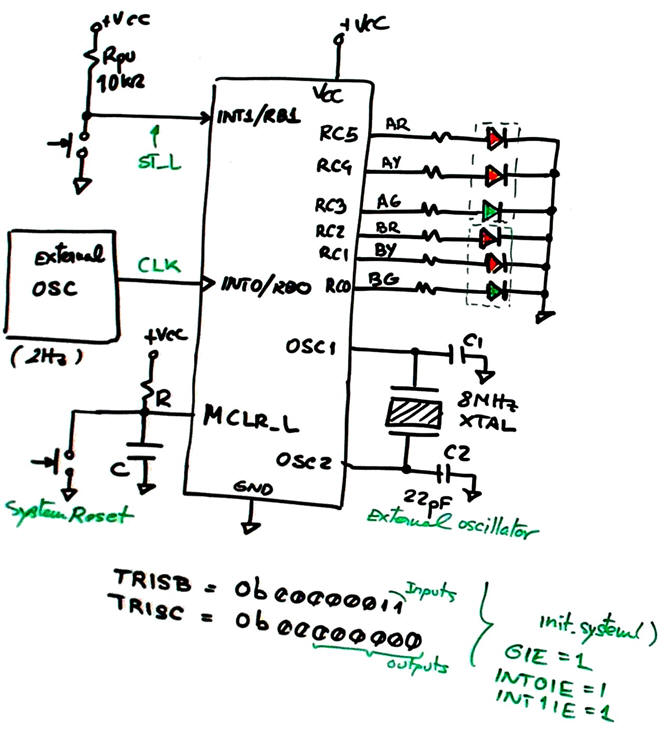 +Vcc
+Vcc
Rpu
10kΩ
Vcc
INT1/RB1
ST_L
RC5
AR
RC4
AY
RC3
AG
RC2
BR
RC1
BY
RC0
BG
External
OSC
CLK
INT0/RB0
(2Hz)
+Vcc
R
OSC1
C1
MCLR_L
8MHz
XTAL
C
OSC2
C2
GND
22pF
System Reset
External oscillator
Inputs
outputs
init_system()
GIE = 1
INT0IE = 1
INT1IE = 1